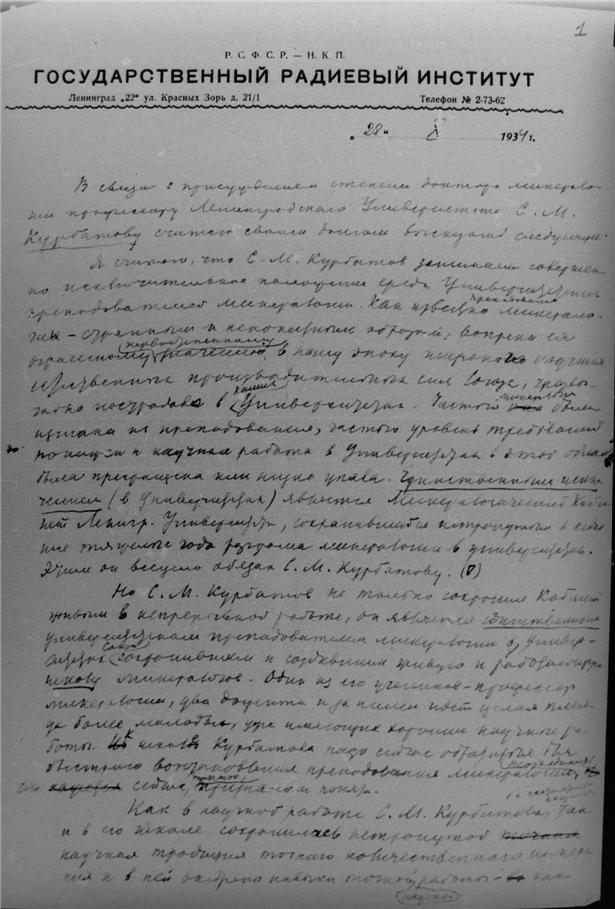 1
Р. С. Ф. С. Р. — Н. К. П.
ГОСУДАРСТВЕННЫЙ РАДИЕВЫЙ ИНСТИТУТ
Ленинград „22“ ул. Красных Зорь д. 21/1 Телефон № 2-73-62
„28“ X 1934 г.
В связи с присуждением степени доктора минерало-
гии профессору Ленинградского Университета С. М.
Курбатову считаю своим долгом высказать следующее.
Я считаю, что С. М. Курбатов занимает совершен-
но исключительное положение среди Университетских
преподавателей минералогии. Как известно преподавание минерало-
гии — странным и непонятным образом, вопреки её
огромному первостепенному значению, в нашу эпоху широкого изучения
естественных производительных сил Союза,
пострадало в наших Университетах. Частью минералогия была
изгнана из преподавания, частью уровень требований
понизился и научная работа в Университетах в этой области
была прекращена или низко упала. Единственным исклю-
чением (в Университетах) является Минералогический Каби-
нет Ленингр. Университета, сохранившийся нетронутым в
тяжелые года разгрома минералогии в университетах.
Этим он всецело обязан С. М. Курбатову.
Но С. М. Курбатов не только сохранил Кабинет
живым в непрерывной работе, он является единственным
университетским преподавателем минералогии в Универ-
Союза сохранившим и создавшим живую и работающую
школу минералогов. Один из его учеников — профессор
минералогии, два доцента и за ними идет целая плея-
да более молодых, уже имеющих хорошие научные ра-
боты. К школе Курбатова надо сейчас обратиться для
быстрого восстановления преподавания минералогии,
сейчас
Как в научной работе С. М. Курбатова, так
и в его школе, сохранилась нетронутой
научная традиция точного количественного измере-
ния и в ней внедрены навыки точной научной работы как